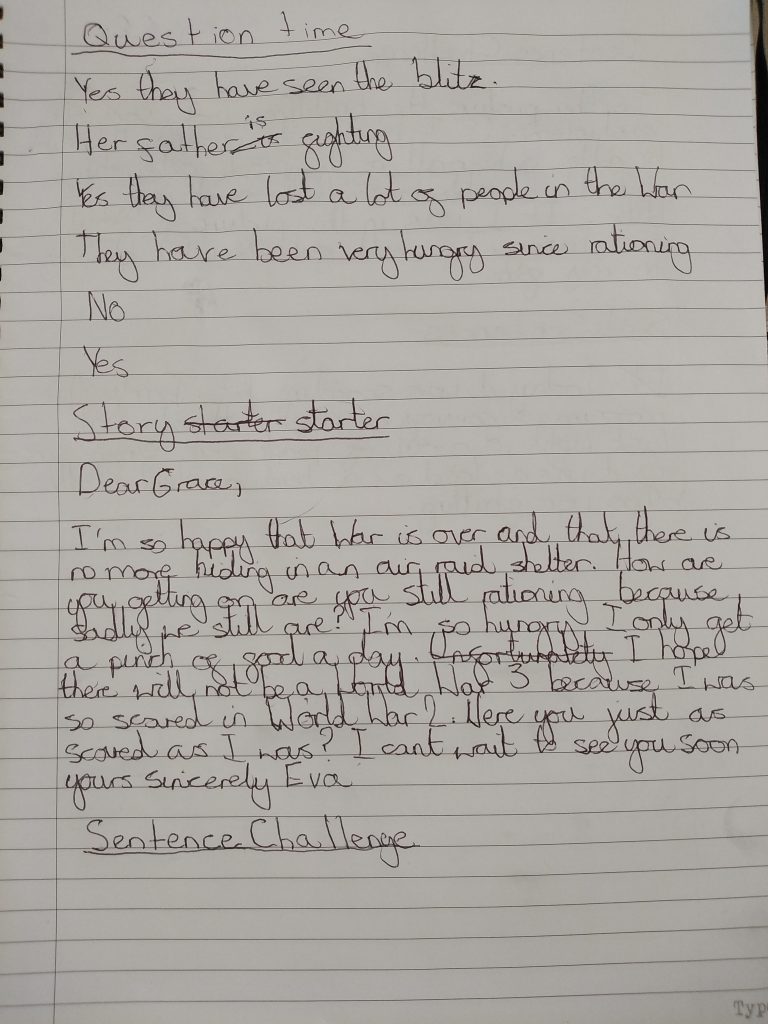 Question time
Yes they have seen the blitz.
Her father is is fighting
Yes they have lost a lot of people in the War
They have been very hungry since rationing
No
Yes
Story starter starter
Dear Grace,
I'm so happy that War is over and that there is
no more hiding in an air raid shelter. How are
you getting on are you still rationing because
sadly we still are? I'm so hungry I only get
a pinch of food a day. Unfortunately I hope
there will not be a World War 3 because I was
so scared in World War 2. Were you just as
scared as I was? I cant wait to see you soon
yours sincerely Eva
Sentence Challenge
Typ